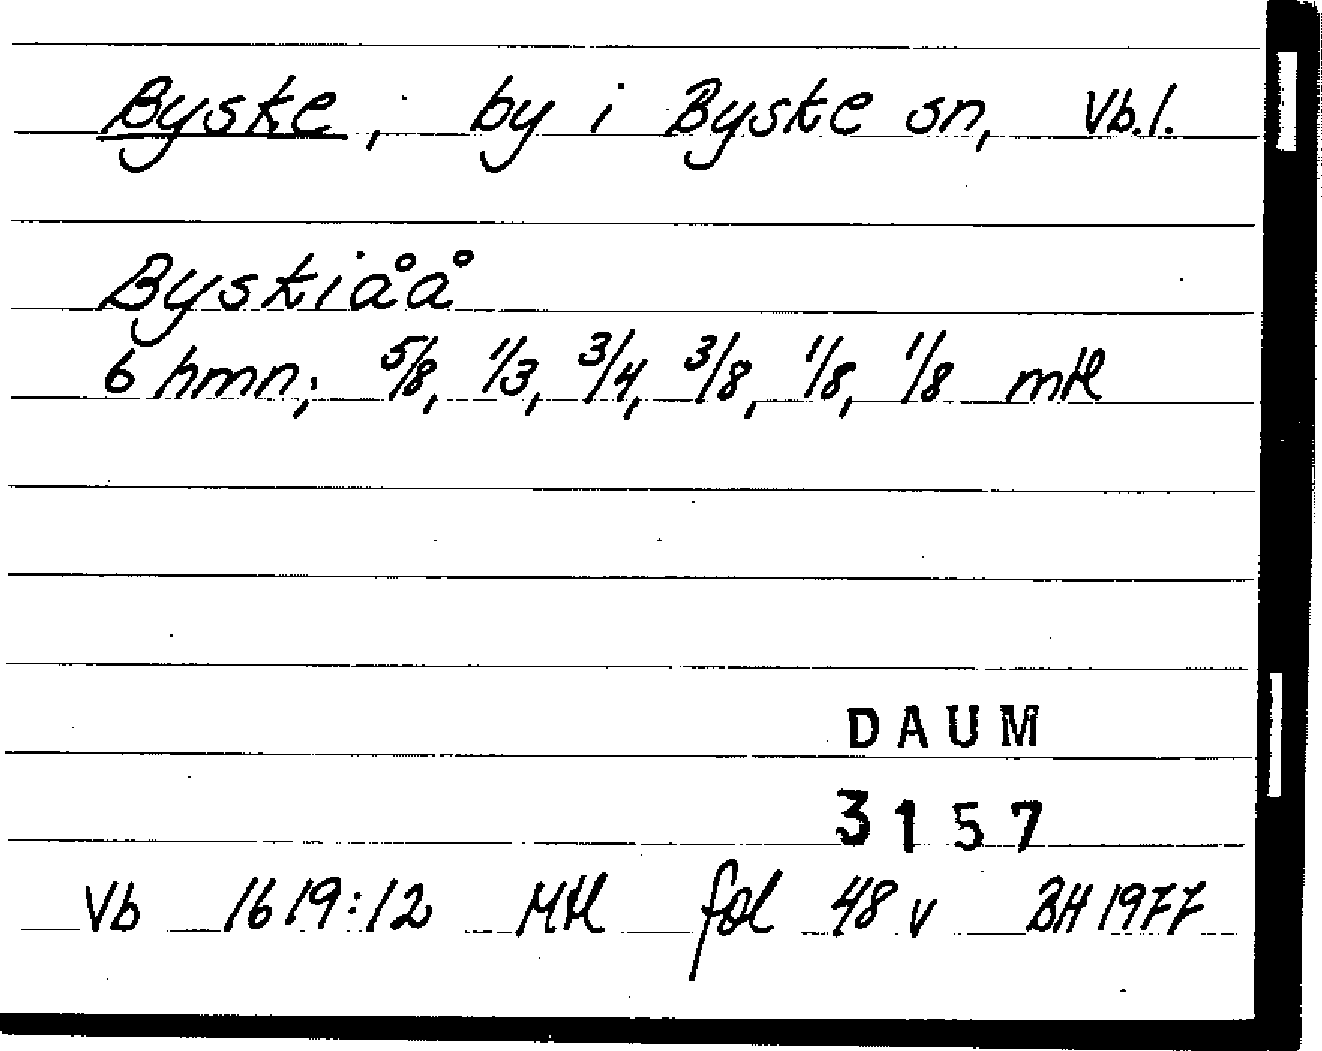 Byske, by i Byske sn, Vb.l.
Byskiåå
6 hmn; 5/8, 1/3, 3/4, 3/8, 1/8, 1/8 mtl
DAUM
3157
Vb 1619:12 Mtl fol 48 v BH 1977